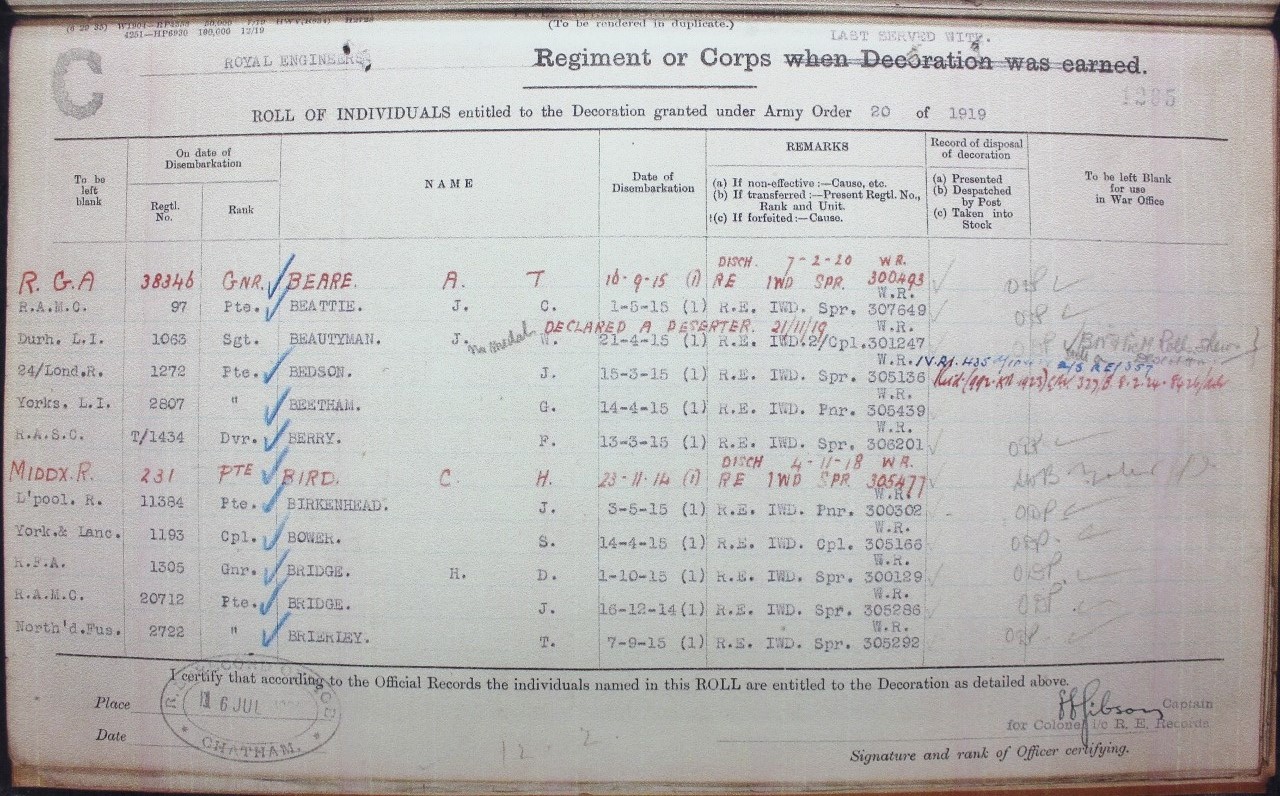 (6 20 35) W1901—HP4353 50,000 7/19 HWV(R634) H2728
4251—HP6930 100,000 12/19
(To be rendered in duplicate.)
C
LAST SERVED WITH.
ROYAL ENGINEERS Regiment or Corps when Decoration was earned.
1285
ROLL OF INDIVIDUALS entitled to the Decoration granted under Army Order 20 of 1919
To be left blank
On date of Disembarkation
Regtl. No.
Rank
NAME
Date of Disembarkation
REMARKS
(a) If non-effective :—Cause, etc.
(b) If transferred :—Present Regtl. No., Rank and Unit.
(c) If forfeited :—Cause.
Record of disposal of decoration
(a) Presented
(b) Despatched by Post
(c) Taken into Stock
To be left Blank for use in War Office
DISCH. 7-2-20 W.R.
R.G.A 38346 GNR. BEARE. A. T 16-9-15 (1) RE IWD SPR. 300493
W.R.
R.A.M.C. 97 Pte. BEATTIE. J. C. 1-5-15 (1) R.E. IWD. Spr. 307649
DECLARED A DESERTER. 21/11/19 W.R.
Durh. L.I. 1063 Sgt. BEAUTYMAN. J. No medal W. 21-4-15 (1) R.E. IWD. 2/Cpl. 301247
W.R.
24/Lond.R. 1272 Pte. BEDSON. J. 15-3-15 (1) R.E. IWD. Spr. 305136
W.R.
Yorks. L.I. 2807 " BEETHAM. G. 14-4-15 (1) R.E. IWD. Pnr. 305439
W.R.
R.A.S.C. T/1434 Dvr. BERRY. F. 13-3-15 (1) R.E. IWD. Spr. 306201
DISCH 4-11-18 W.R.
MIDDX.R. 231 PTE BIRD. C. H. 23-11-14 (1) RE IWD SPR 305477
W.R.
L'pool. R. 11384 Pte. BIRKENHEAD. J. 3-5-15 (1) R.E. IWD. Pnr. 300302
W.R.
York.& Lanc. 1193 Cpl. BOWER. S. 14-4-15 (1) R.E. IWD. Cpl. 305166
W.R.
R.F.A. 1305 Gnr. BRIDGE. H. D. 1-10-15 (1) R.E. IWD. Spr. 300129
W.R.
R.A.M.C. 20712 Pte. BRIDGE. J. 16-12-14(1) R.E. IWD. Spr. 305286
W.R.
North'd.Fus. 2722 " BRIERLEY. T. 7-9-15 (1) R.E. IWD. Spr. 305292
I certify that according to the Official Records the individuals named in this ROLL are entitled to the Decoration as detailed above.
Place
6 JUL
CHATHAM.
Date
12. 2
Gibson Captain
for Colonel i/c R. E. Records
Signature and rank of Officer certifying.